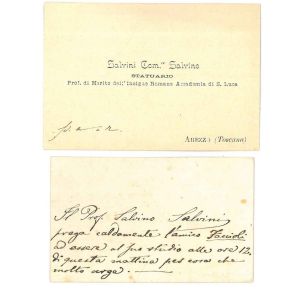 Salvini Com.re Salvino
STATUARIO
Prof. di Merito dell'Insigne Romana Accademia di S. Luca
Arezzo (Toscana)
Il Prof. Salvino Salvini
prega caldamente l'amico Faccioli
ad essere al suo studio alle ore 12
di questa mattina per cosa che
molto urge.